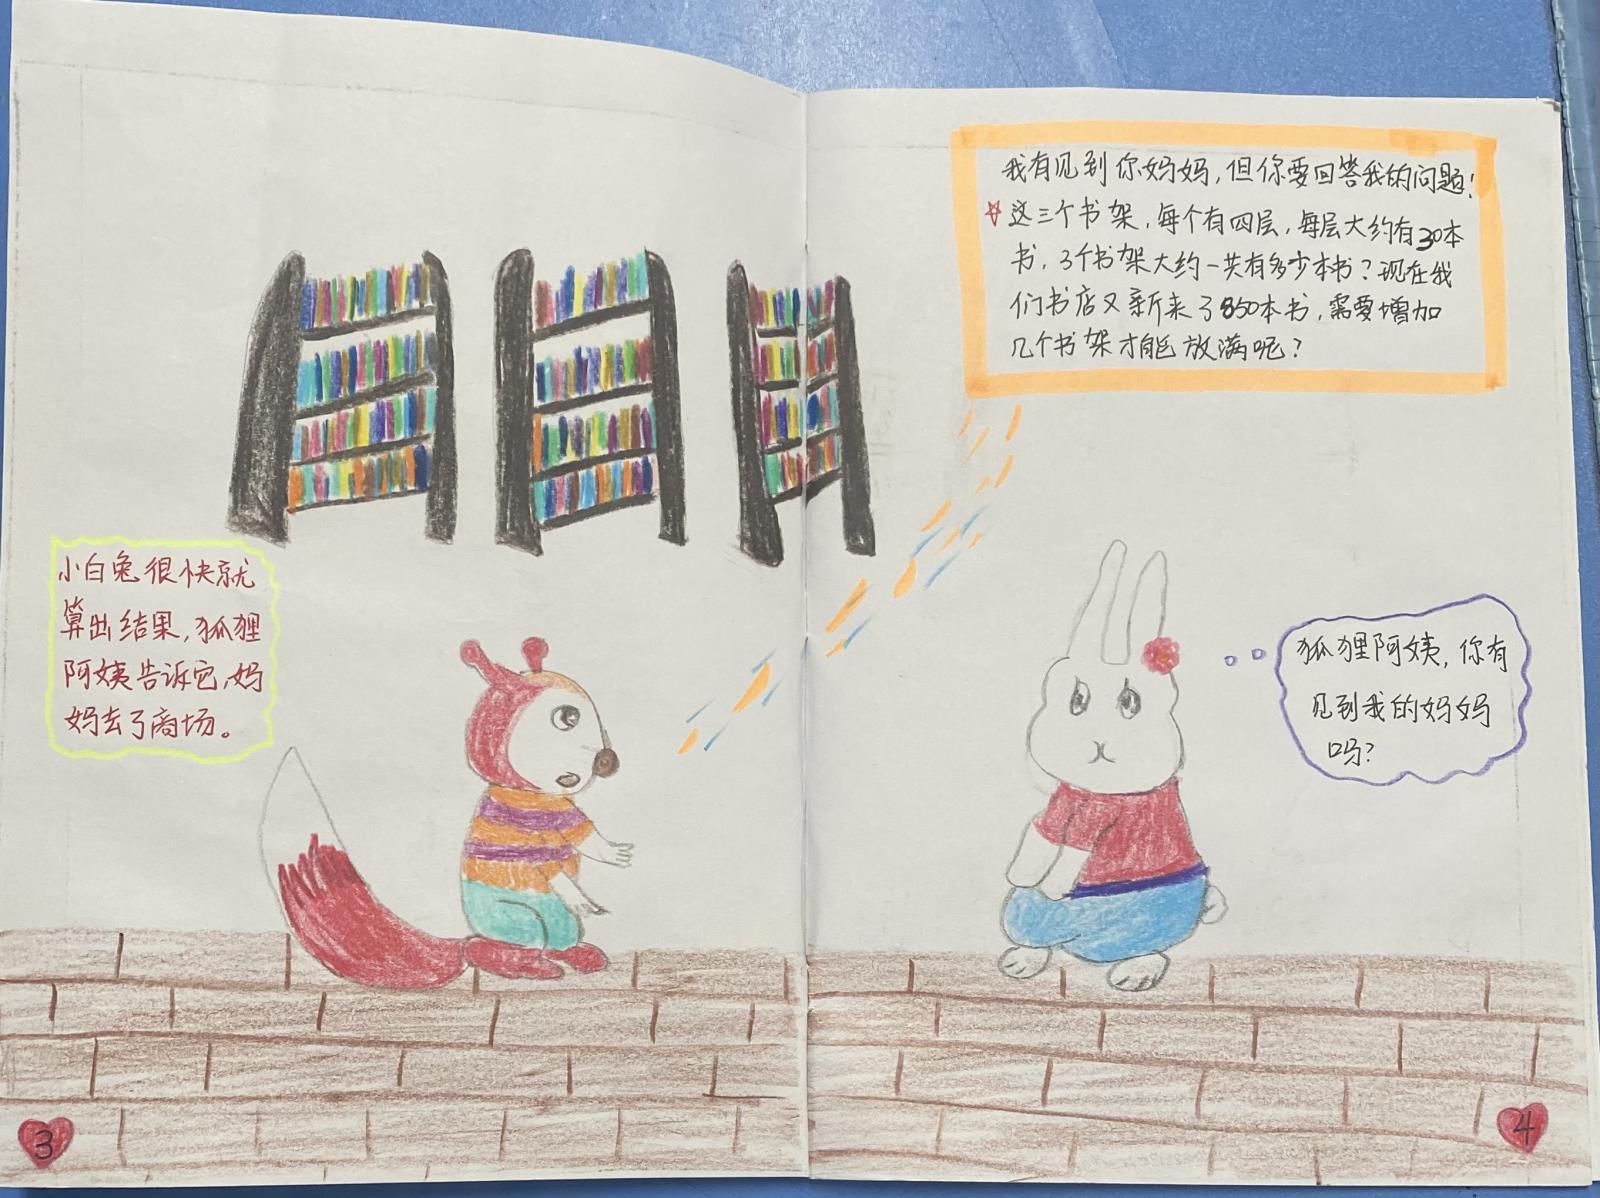 小白兔很快就
算出结果，狐狸
阿姨告诉它，妈
妈去了商场。
3
我有见到你妈妈，但你要回答我的问题！
☆这三个书架，每个有四层，每层大约有30本
书，3个书架大约一共有多少本书？现在我
们书店又新来了850本书，需要增加
几个书架才能放满呢？
狐狸阿姨，你有
见到我的妈妈
吗？
4